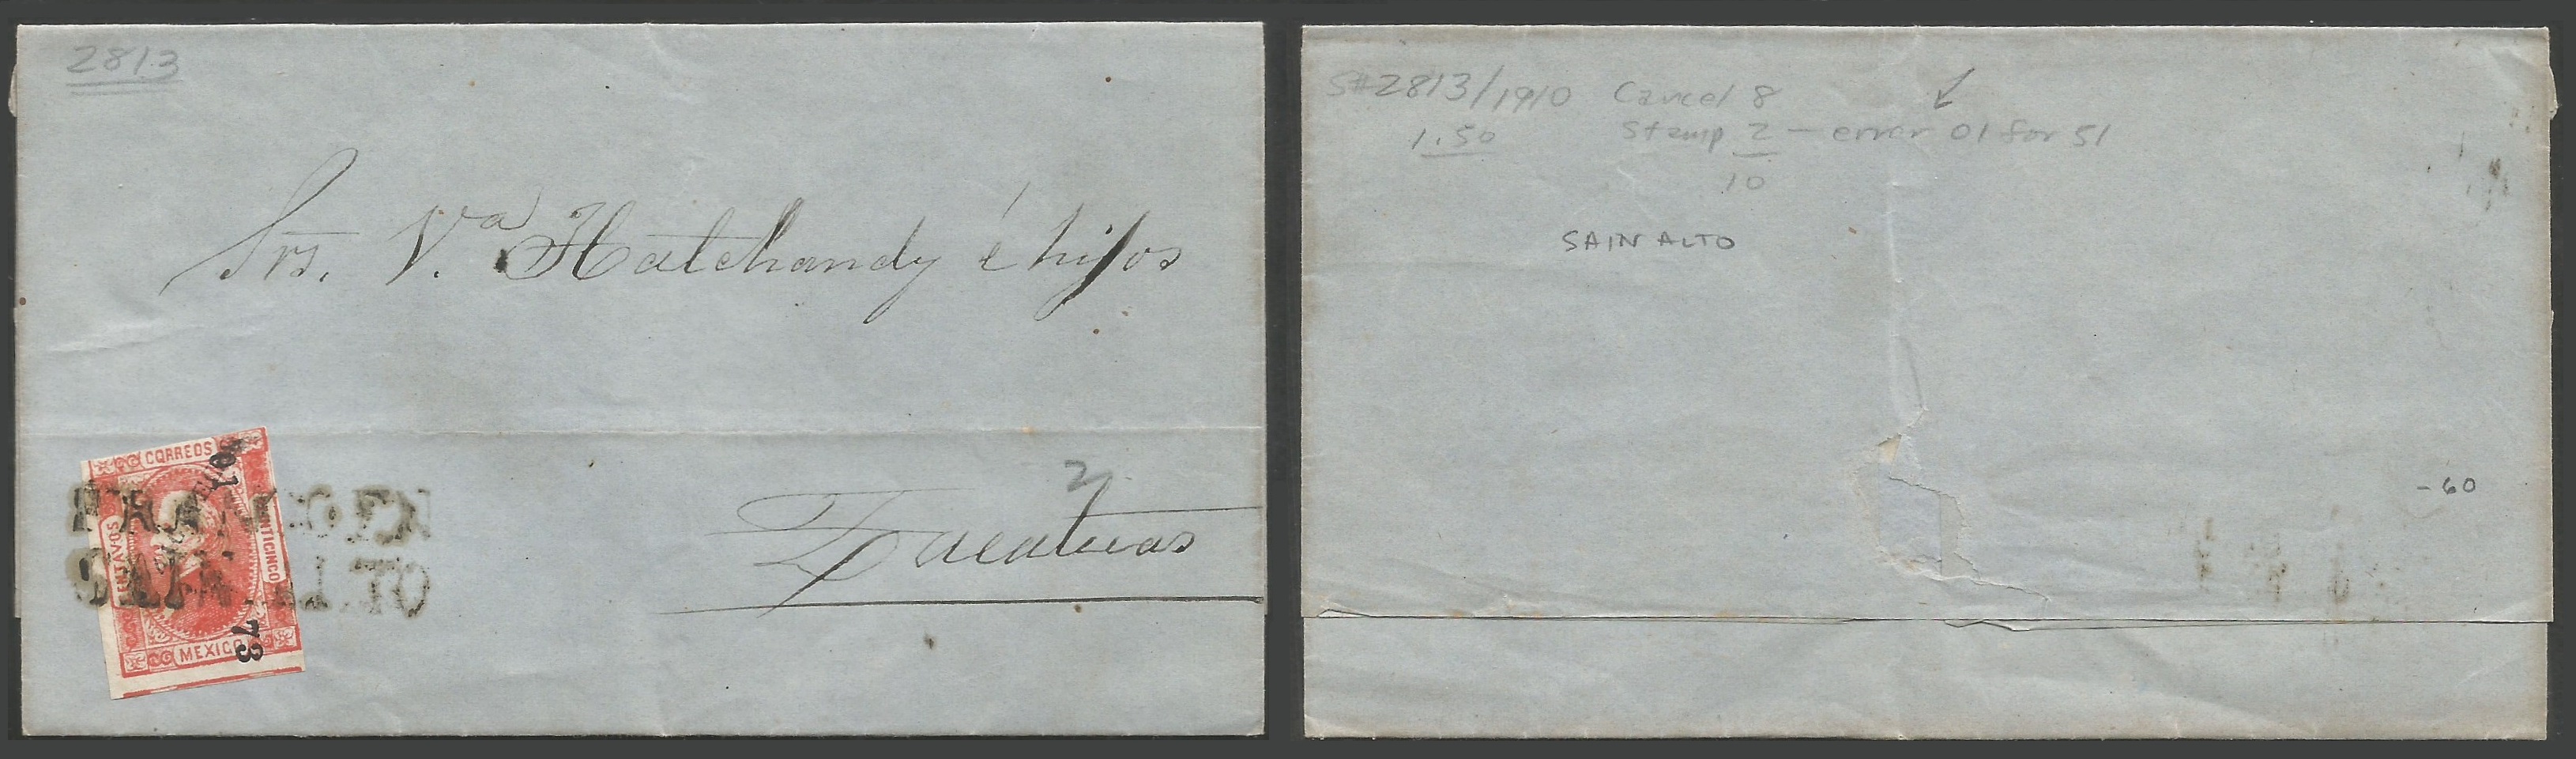 2813
Srs. Va Hatchandy é hijos
2
Zacatecas
CORREOS
CENTAVOS
VEINTICINCO
MEXICO
01
73
FRANCO EN
SAIN ALTO
S#2813/1910 Cancel 8
1.50 Stamp 2 - error 01 for 51
10
SAIN ALTO
-60